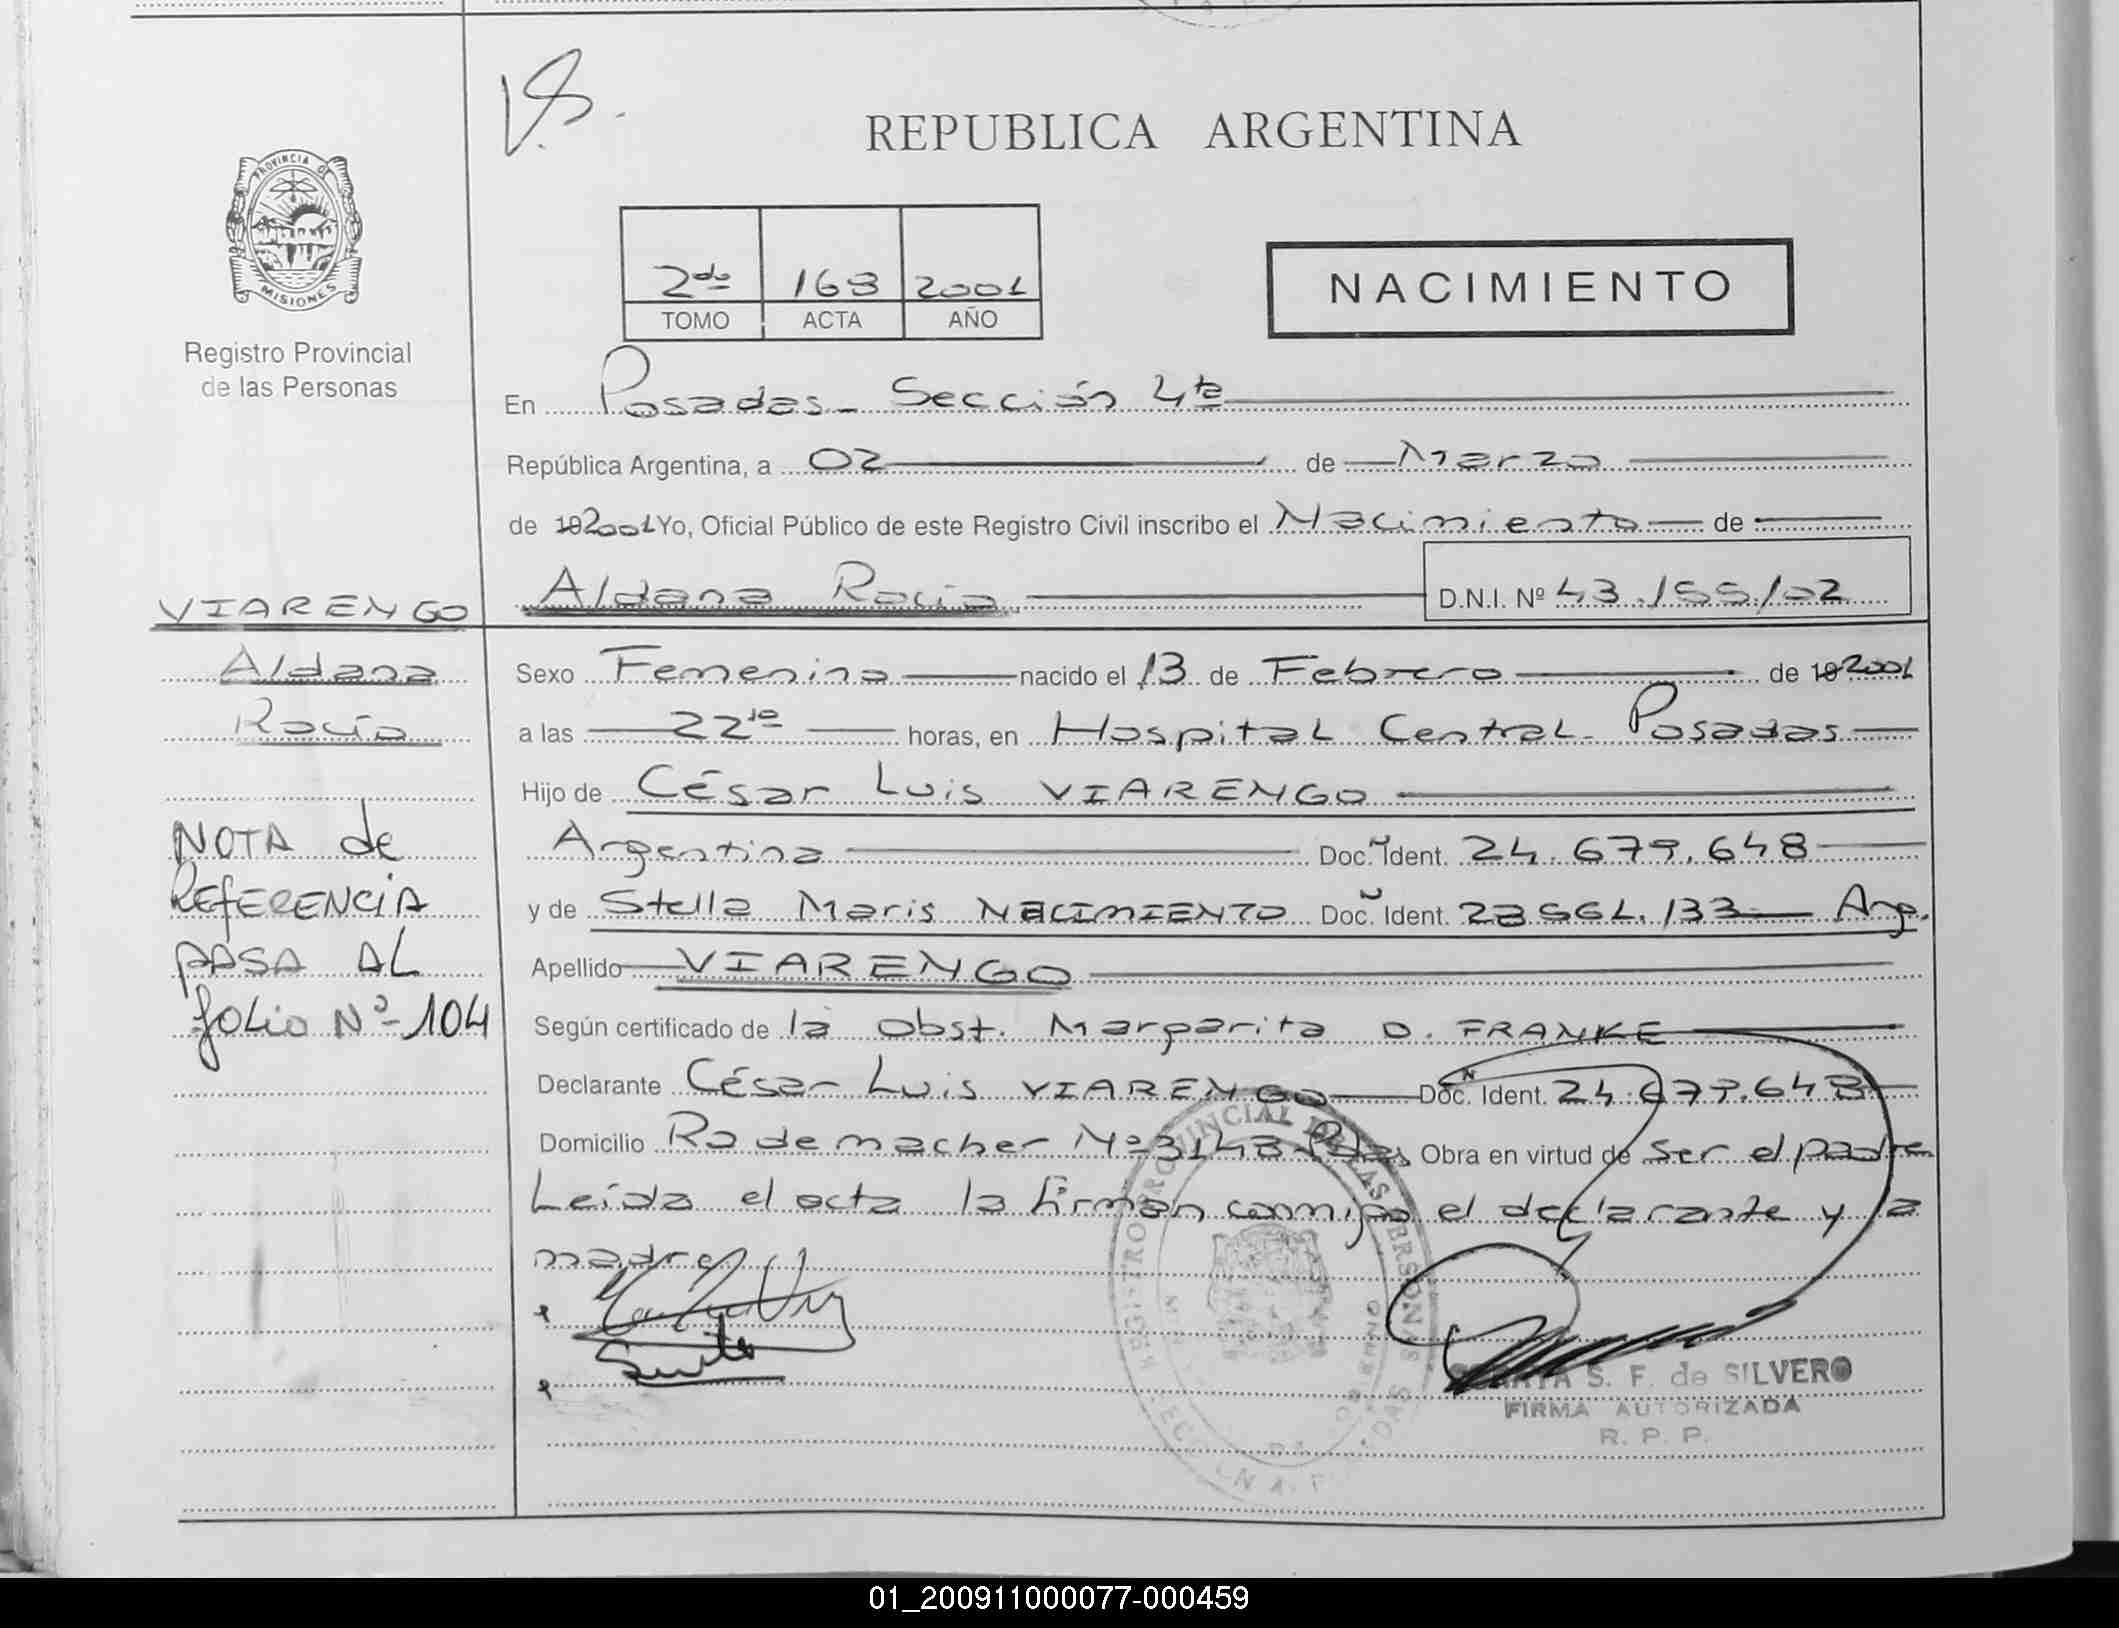 REPUBLICA ARGENTINA
PROVINCIA DE
MISIONES
Registro Provincial
de las Personas
2do 168 2001
TOMO ACTA AÑO
NACIMIENTO
En Posadas - Sección 4ta
República Argentina, a 02 de Marzo
de 19 2001 Yo, Oficial Público de este Registro Civil inscribo el Nacimiento de
VIARENGO Aldana Rocío D.N.I. Nº 43.155.102
Aldana
Rocío
NOTA de
REFERENCIA
PASA AL
folio Nº 104
Sexo Femenino nacido el 13 de Febrero de 19 2001
a las 22 10 horas, en Hospital Central - Posadas
Hijo de César Luis VIARENGO
Argentino Doc. N Ident. 24.679.648
y de Stella Maris NACIMIENTO Doc. N Ident. Arg.
Apellido VIARENGO
Según certificado de la Obst. Margarita D. FRANKE
Declarante César Luis VIARENGO Doc. N Ident. 24.679.648
Domicilio Rademacher Nº 3148 Pdas Obra en virtud de ser el padre
Leída el acta la firman conmigo el declarante y la
madre
S. F. de SILVERO
FIRMA AUTORIZADA
R. P. P.
REGISTRO PROVINCIAL DE LAS PERSONAS
01_200911000077-000459